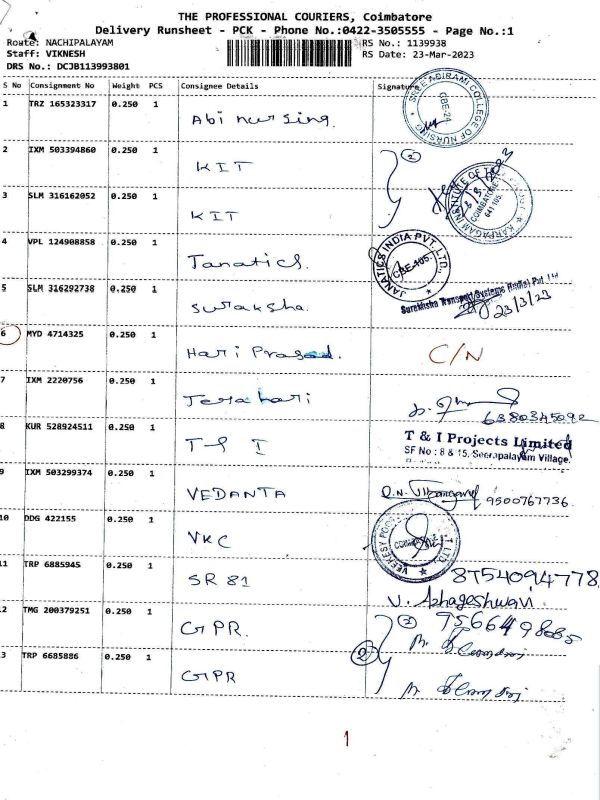 THE PROFESSIONAL COURIERS, Coimbatore
Delivery Runsheet - PCK - Phone No.:0422-3505555 - Page No.:1
Route: NACHIPALAYAM RS No.: 1139938
Staff: VIKNESH RS Date: 23-Mar-2023
DRS No.: DCJB113993801
S No Consignment No Weight PCS Consignee Details Signature
1 TRZ 165323317 0.250 1 Abi nursing.
SREE ABIRAMI COLLEGE OF NURSING
CBE-24
2 IXM 503394860 0.250 1 KIT 2
3 SLM 316162052 0.250 1 KIT
KARPAGAM INSTITUTE OF
COIMBATORE
641 105.
4 VPL 124908858 0.250 1 Janatics.
JANATICS INDIA PVT. LTD.,
CBE-105.
5 SLM 316292738 0.250 1 Suraksha.
Suraksha Transport Systems (India) Pvt. Ltd
23/3/23
6 MYD 4714325 0.250 1 Hari Prasad. C/N
7 IXM 2220756 0.250 1
6380345092
8 KUR 528924511 0.250 1 T & I
T & I Projects Limited
SF No : 8 & 15, Seerapalayam Village.
9 IXM 503299374 0.250 1 VEDANTA 9500767736
10 DDG 422155 0.250 1 VKC
COIMBATORE
11 TRP 6885945 0.250 1 SR 81 8754094778
V. Azhageshwari
12 TMG 200379251 0.250 1 GPR. 2
3 TRP 6685886 0.250 1 GPR 2
1